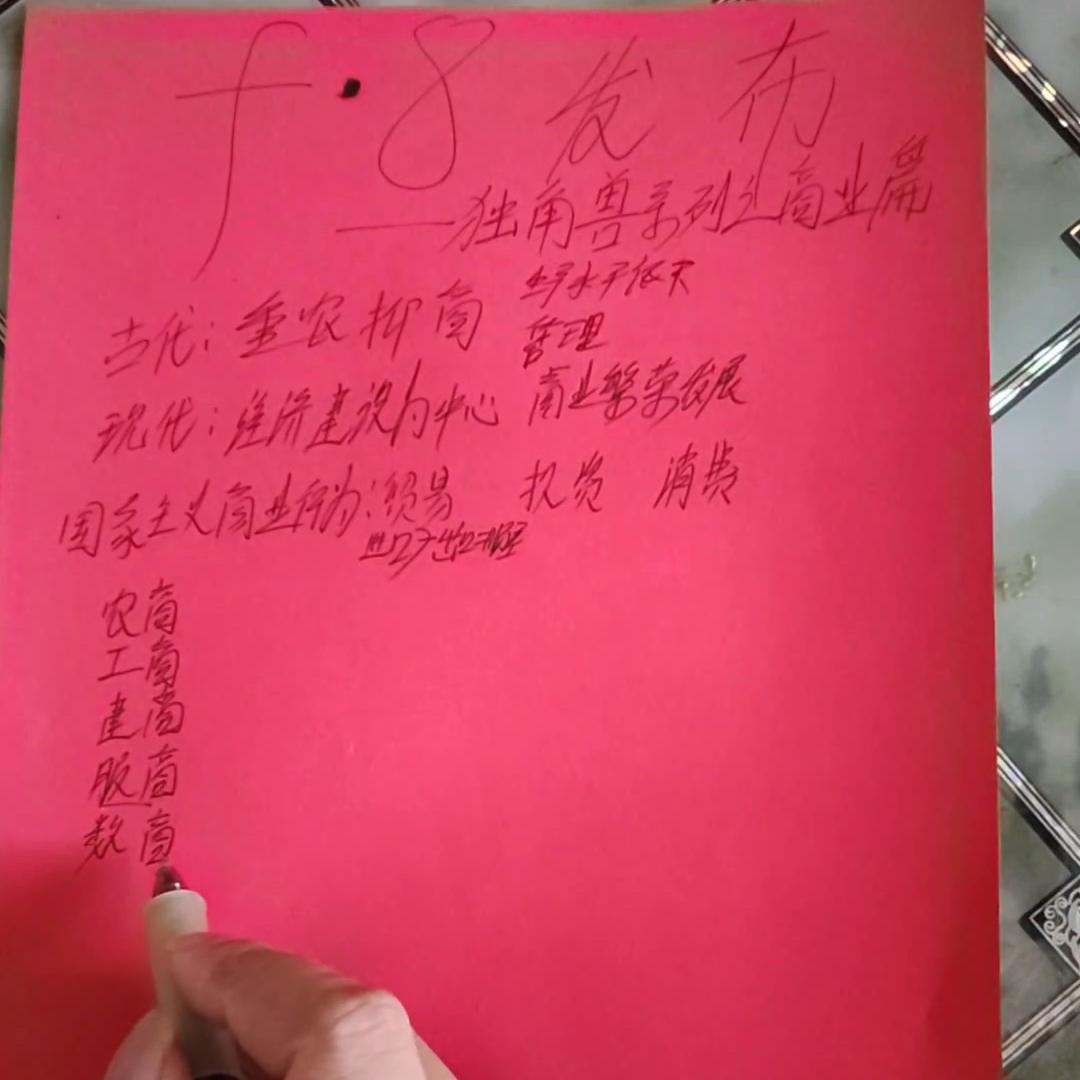 f·8 发布
——独角兽系列之商业篇
古代:重农抑商 生产水平低下
管理
现代:经济建设为中心 商业繁荣发展
国家主义商业行为:贸易 投资 消费
农商
工商
建商
服商
数商